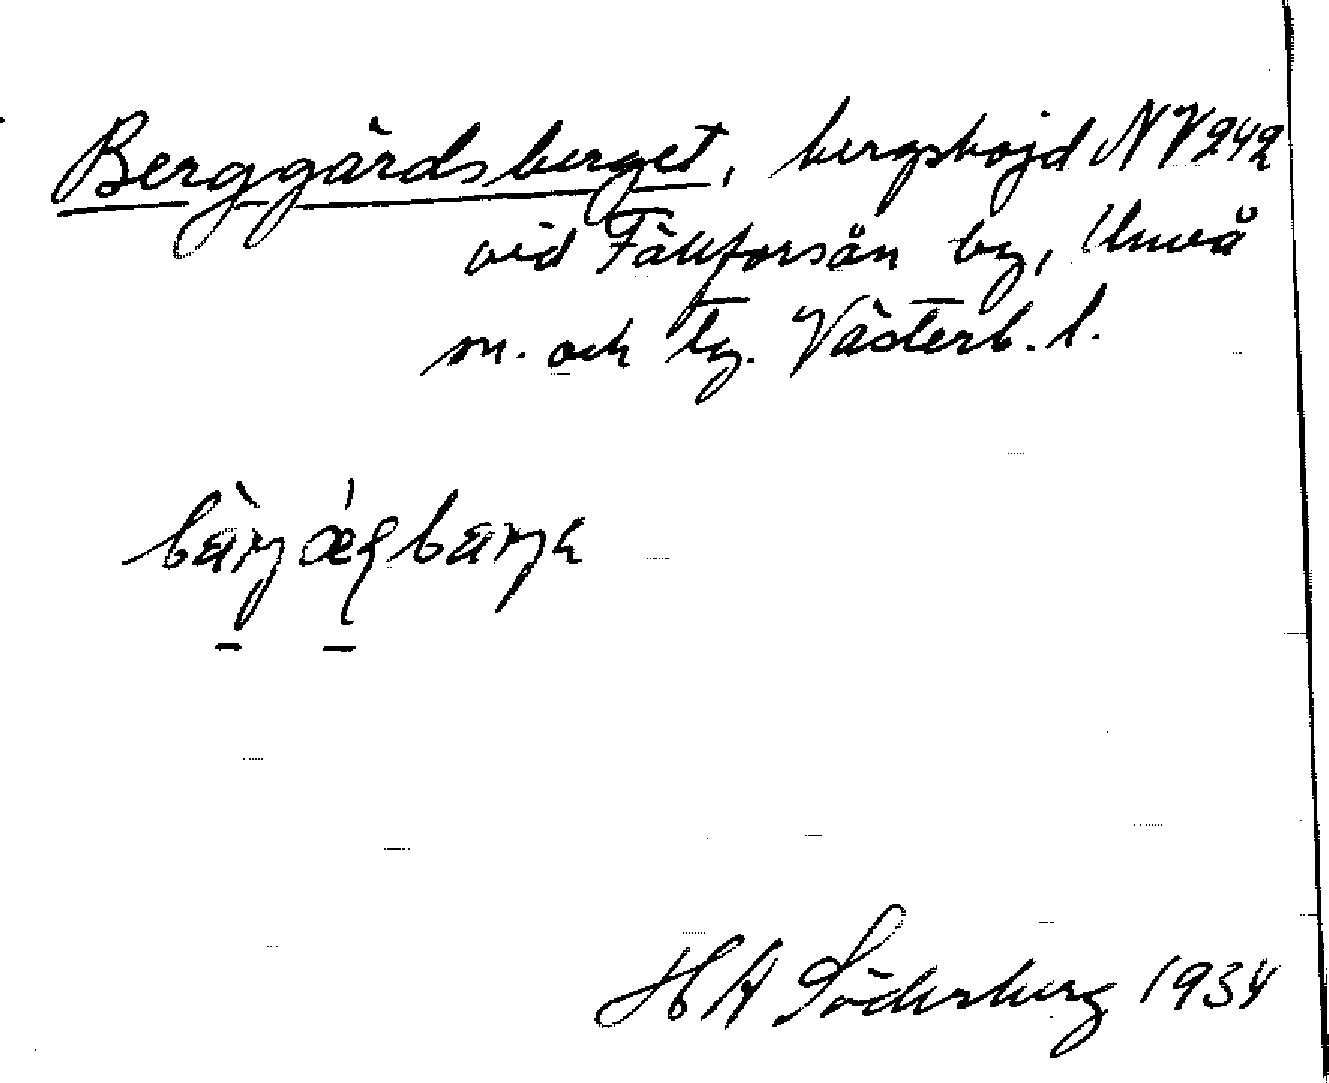 Berggårdsberget, bergshöjd NV 242
vid Fäkforsån by, Umeå
sn. och tg. Västerb. l.
H A Söderberg 1934